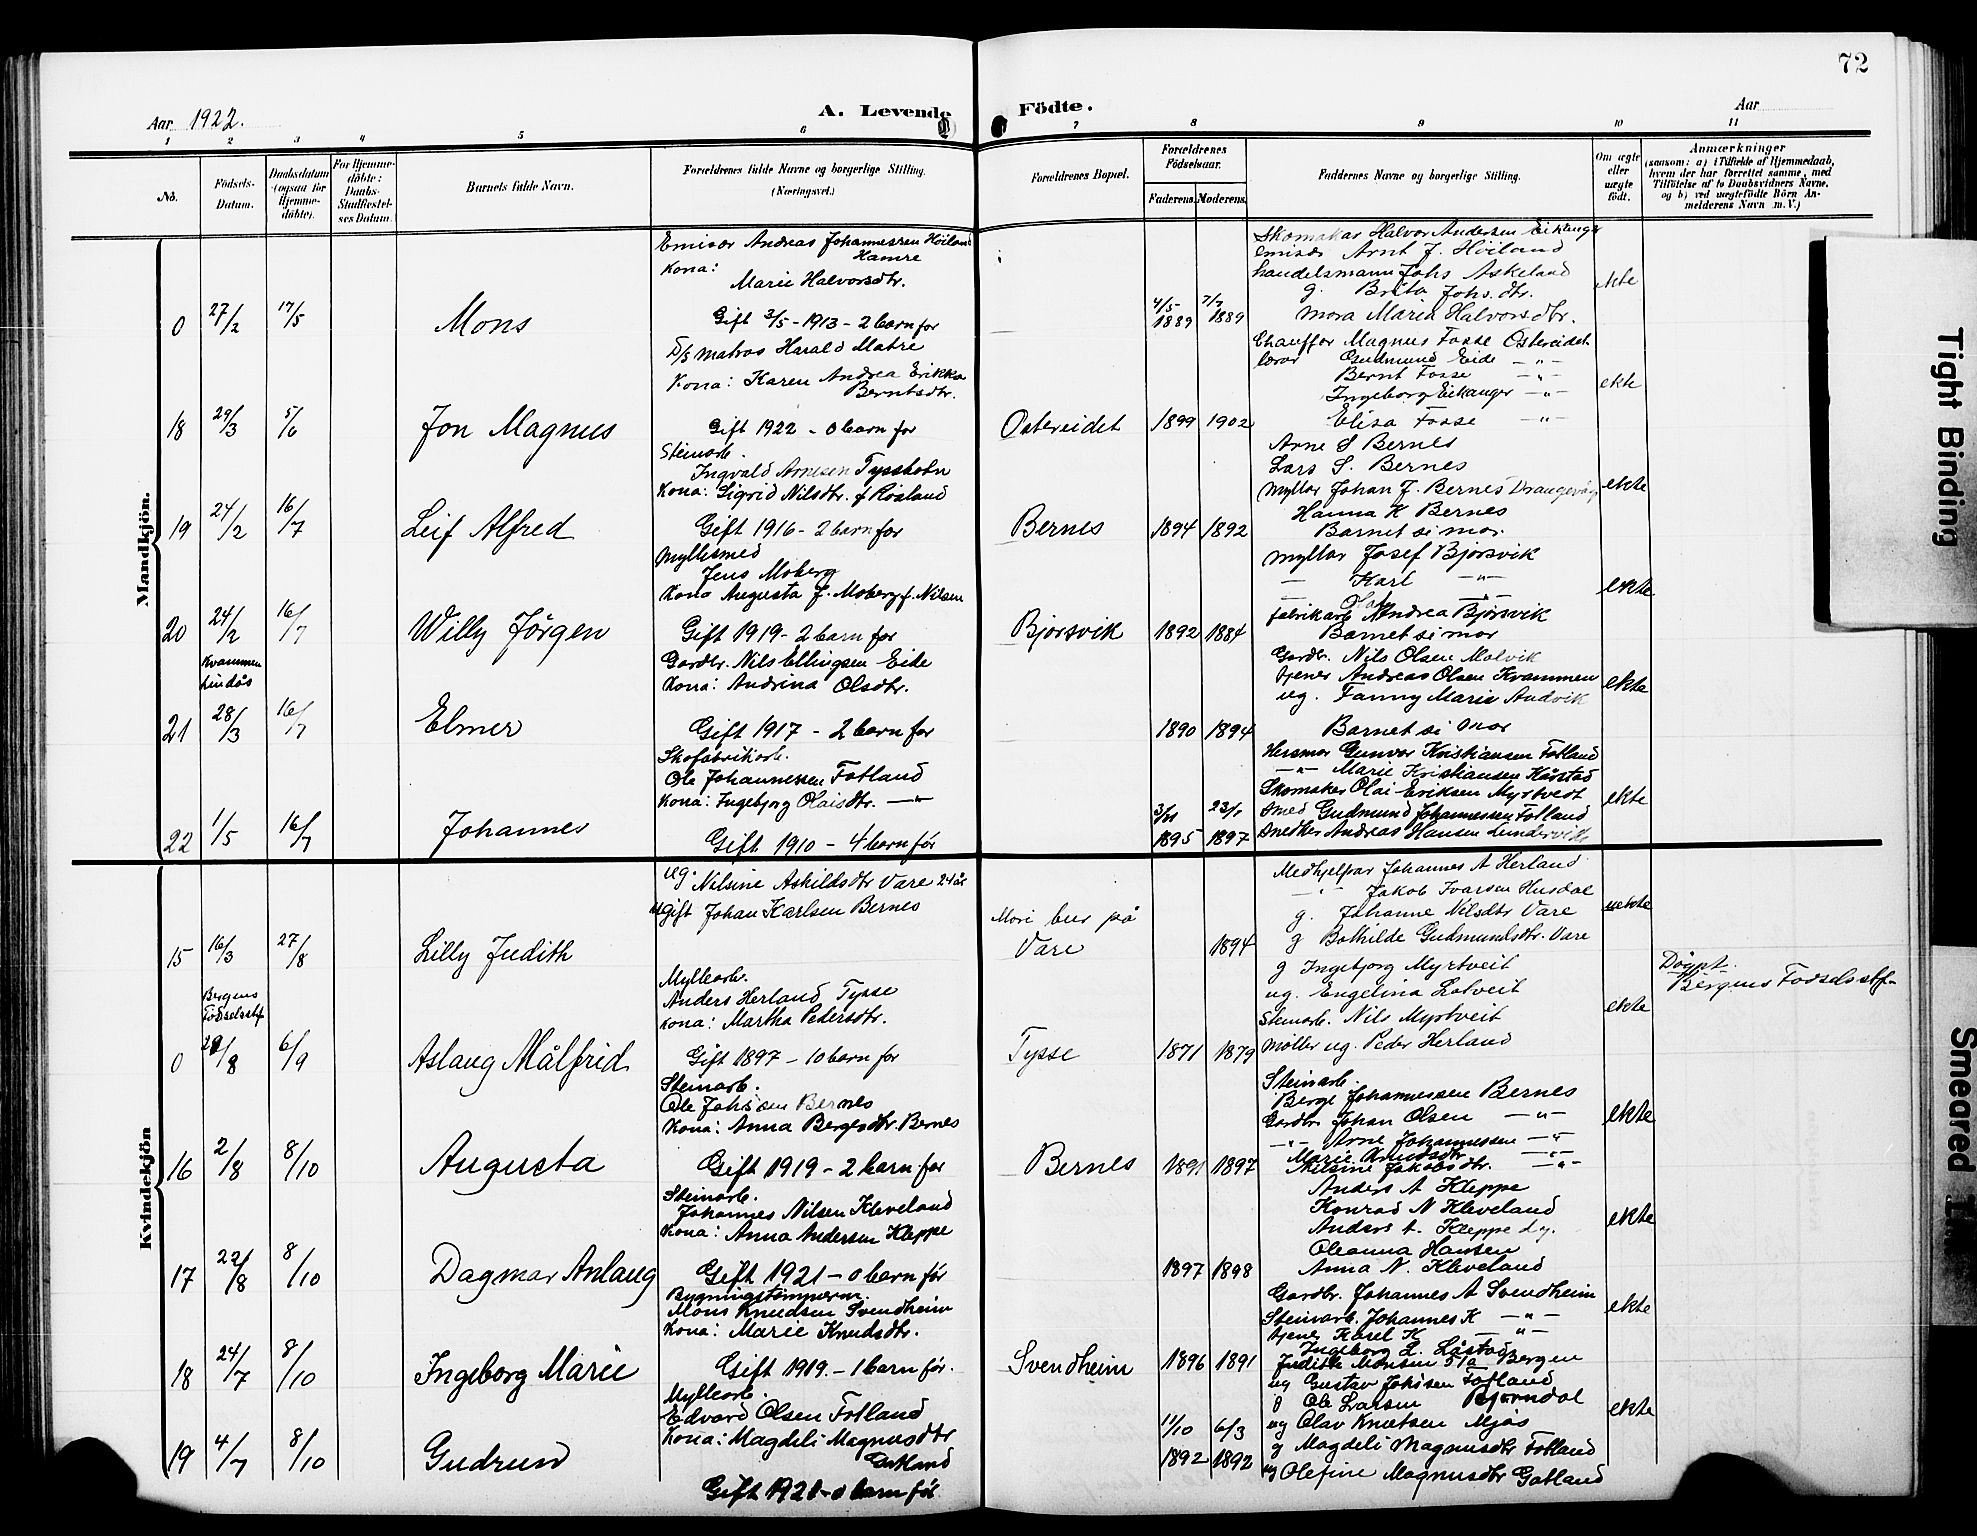 72
Aar 1922.
A. Levende Födte.
Aar
1 2 3 4 5 6 7 8 9 10 11
No.
Födsels-Datum.
Daabsdatum (ogsaa for Hjemmedöbte).
For Hjemmedöbte: Daabs-Stadfæstelses Datum.
Barnets fulde Navn.
Forældrenes fulde Navne og borgerlige Stilling. (Næringsvei.)
Forældrenes Bopæl.
Forældrenes Födselsaar.
Faderens. Moderens.
Faddernes Navne og borgerlige Stilling.
Om ægte eller uægte födt.
Anmærkninger
(saasom: a) i Tilfælde af Hjemmedaab,
hvem der har forrettet samme, med
Tilföielse af to Daabsvidners Navne,
og b) ved uægtefödte Börn Anmelderens Navn m. V.)
Mandkjön.
0 27/2 17/5 Mons
Emisær Andreas Johannessen Höiland
Hamre
Kona:
Marie Halvorsdtr.
Gift 3/5 - 1913 - 2 barn før
4/5 1889 7/7 1889
Skomakar Halvor Andersen Eikanger
emisær Arnt J. Höiland
handelsmann Johs Askeland
g. Brita Johs.dtr.
mora Marie Halvorsdtr.
ekte
18 29/3 5/6 Jon Magnus
D/S matros Harald Matre
Kona: Karen Andrea Erikka
Berntsdtr.
Gift 1922 - 0 barn før
Ostereidet 1899 1902
Chauffør Magnus Fosse Ostereidet
lærar Gudmund Eide —"—
Bernt Fosse —"—
Ingeborg Eikanger —"—
Elisa Fosse —"—
ekte
19 24/2 16/7 Leif Alfred
Steinarb.
Ingvald Arnesen Tysseholm
Kona: Sigrid Nilsdtr. f Rosland
Gift 1916 - 2 barn før
Bernes 1894 1892
Arne S Bernes
Lars S. Bernes
myllar Johan J. Bernes Drangevåg
Hanna K Bernes
Barnet si mor.
ekte
20 24/2 16/7 Willy Jörgen
myllesmed
Jens Moberg
Kona Augusta J. Moberg f. Nilsen
Gift 1919 - 2 barn før
Bjorsvik 1892 1884
myllar Josef Bjorsvik
— Karl —"—
Olaf —"—
fabrikarb Andrea Bjorsvik
Barnet si mor
ekte
Kvammen
Lindås
21 28/3 16/7 Elmer
Gardbr. Nils Ellingsen Eide
Kona: Andrina Olsdtr.
Gift 1917 - 2 barn før
1890 1894
Gardbr. Nils Olsen Molvik
tjener Andreas Olsen Kvammen
ug. Fanny Marie Andvik
Barnet si mor
ekte
22 1/5 16/7 Johannes
Skofabrikarb.
Ole Johannessen Fotland
Kona: Ingebjorg Olaisdtr. —"—
Gift 1910 - 4 barn før
1895 23/7 1897
Husmor Gunvor Kristiansen Fotland
—"— Marie Kristiansen Håstad
Skomaker Olai Eriksen Myrtvedt
smed Gudmund Johannessen Fotland
snedker Andreas Hansen Lundervik
ekte
Kvindekjön
15 16/3 27/8 Lilly Judith
ug. Nilsine Askildsdtr Vare 24 år
Gift Johan Karlsen Bernes
Mori bur på
Vare
1894
Medhjelpar Johannes A Herland
—"— Jakob Ivarsen Husdal
g. Johanne Nilsdtr Vare
g Bothilde Gudmundsdtr. Vare
uekte
Bergens
Fodselsstif
0 29/8 6/9 Aslaug Målfrid
Myllearb.
Anders Herland Tysse
Kona: Martha Pedersdtr.
Gift 1897 - 10 barn før
Tysse 1871 1879
g Ingebjorg Myrtveit
ug. Engelina Lotveit
Steinarb. Nils Myrtveit
Møller ug. Peder Herland
ekte
Døypt
Bergens Fodselsstf-
16 2/8 8/10 Augusta
Steinarb.
Ole Johs'sen Bernes
Kona: Anna Bergesdtr. Bernes
Gift 1919 - 2 barn før
Bernes 1891 1897
Steinarb.
Berge Johannessen Bernes
Gardbr. Johan Olsen —"—
—"— Arne Johannessen —"—
Marie Knudsdtr —"—
Nilsine Jakobsdtr. —"—
ekte
17 22/8 8/10 Dagmar Anlaug
Steinarb.
Johannes Nilsen Kleveland
Kona: Anna Andersen Kleppe
Gift 1921 - 0 barn før
1897 1898
Anders A Kleppe
Konrad N Kleveland
Anders A. Kleppe d.y.
Oleanna Hansen
Anna N. Kleveland
ekte
18 24/7 8/10 Ingeborg Marie
Bygningstömmerm.
Mons Knudsen Svendheim
Kona: Marie Knudsdtr.
Gift 1919 - 1 barn før.
Svendheim 1896 1891
Gardbr. Johannes A Svendheim
Steinarb. Johannes K —"—
tjener Karel K —"—
Ingeborg L.
Judith Monsen 51a Bergen
ekte
19 4/7 8/10 Gudrun
Myllearb.
Edvard Olsen Fotland
Kona: Magdeli Magnusdtr
Gift 1921 - 0 barn før
11/10 1892 6/3 1892
ug Gustav Johs'sen Fotland
g Ole Larsen Bjørndal
ug Olav Knutsen Mjøs
g Magdeli Magnusdtr Fotland
ug Olefine Magnusdtr Gotland
ekte
Tight Binding
Smeared